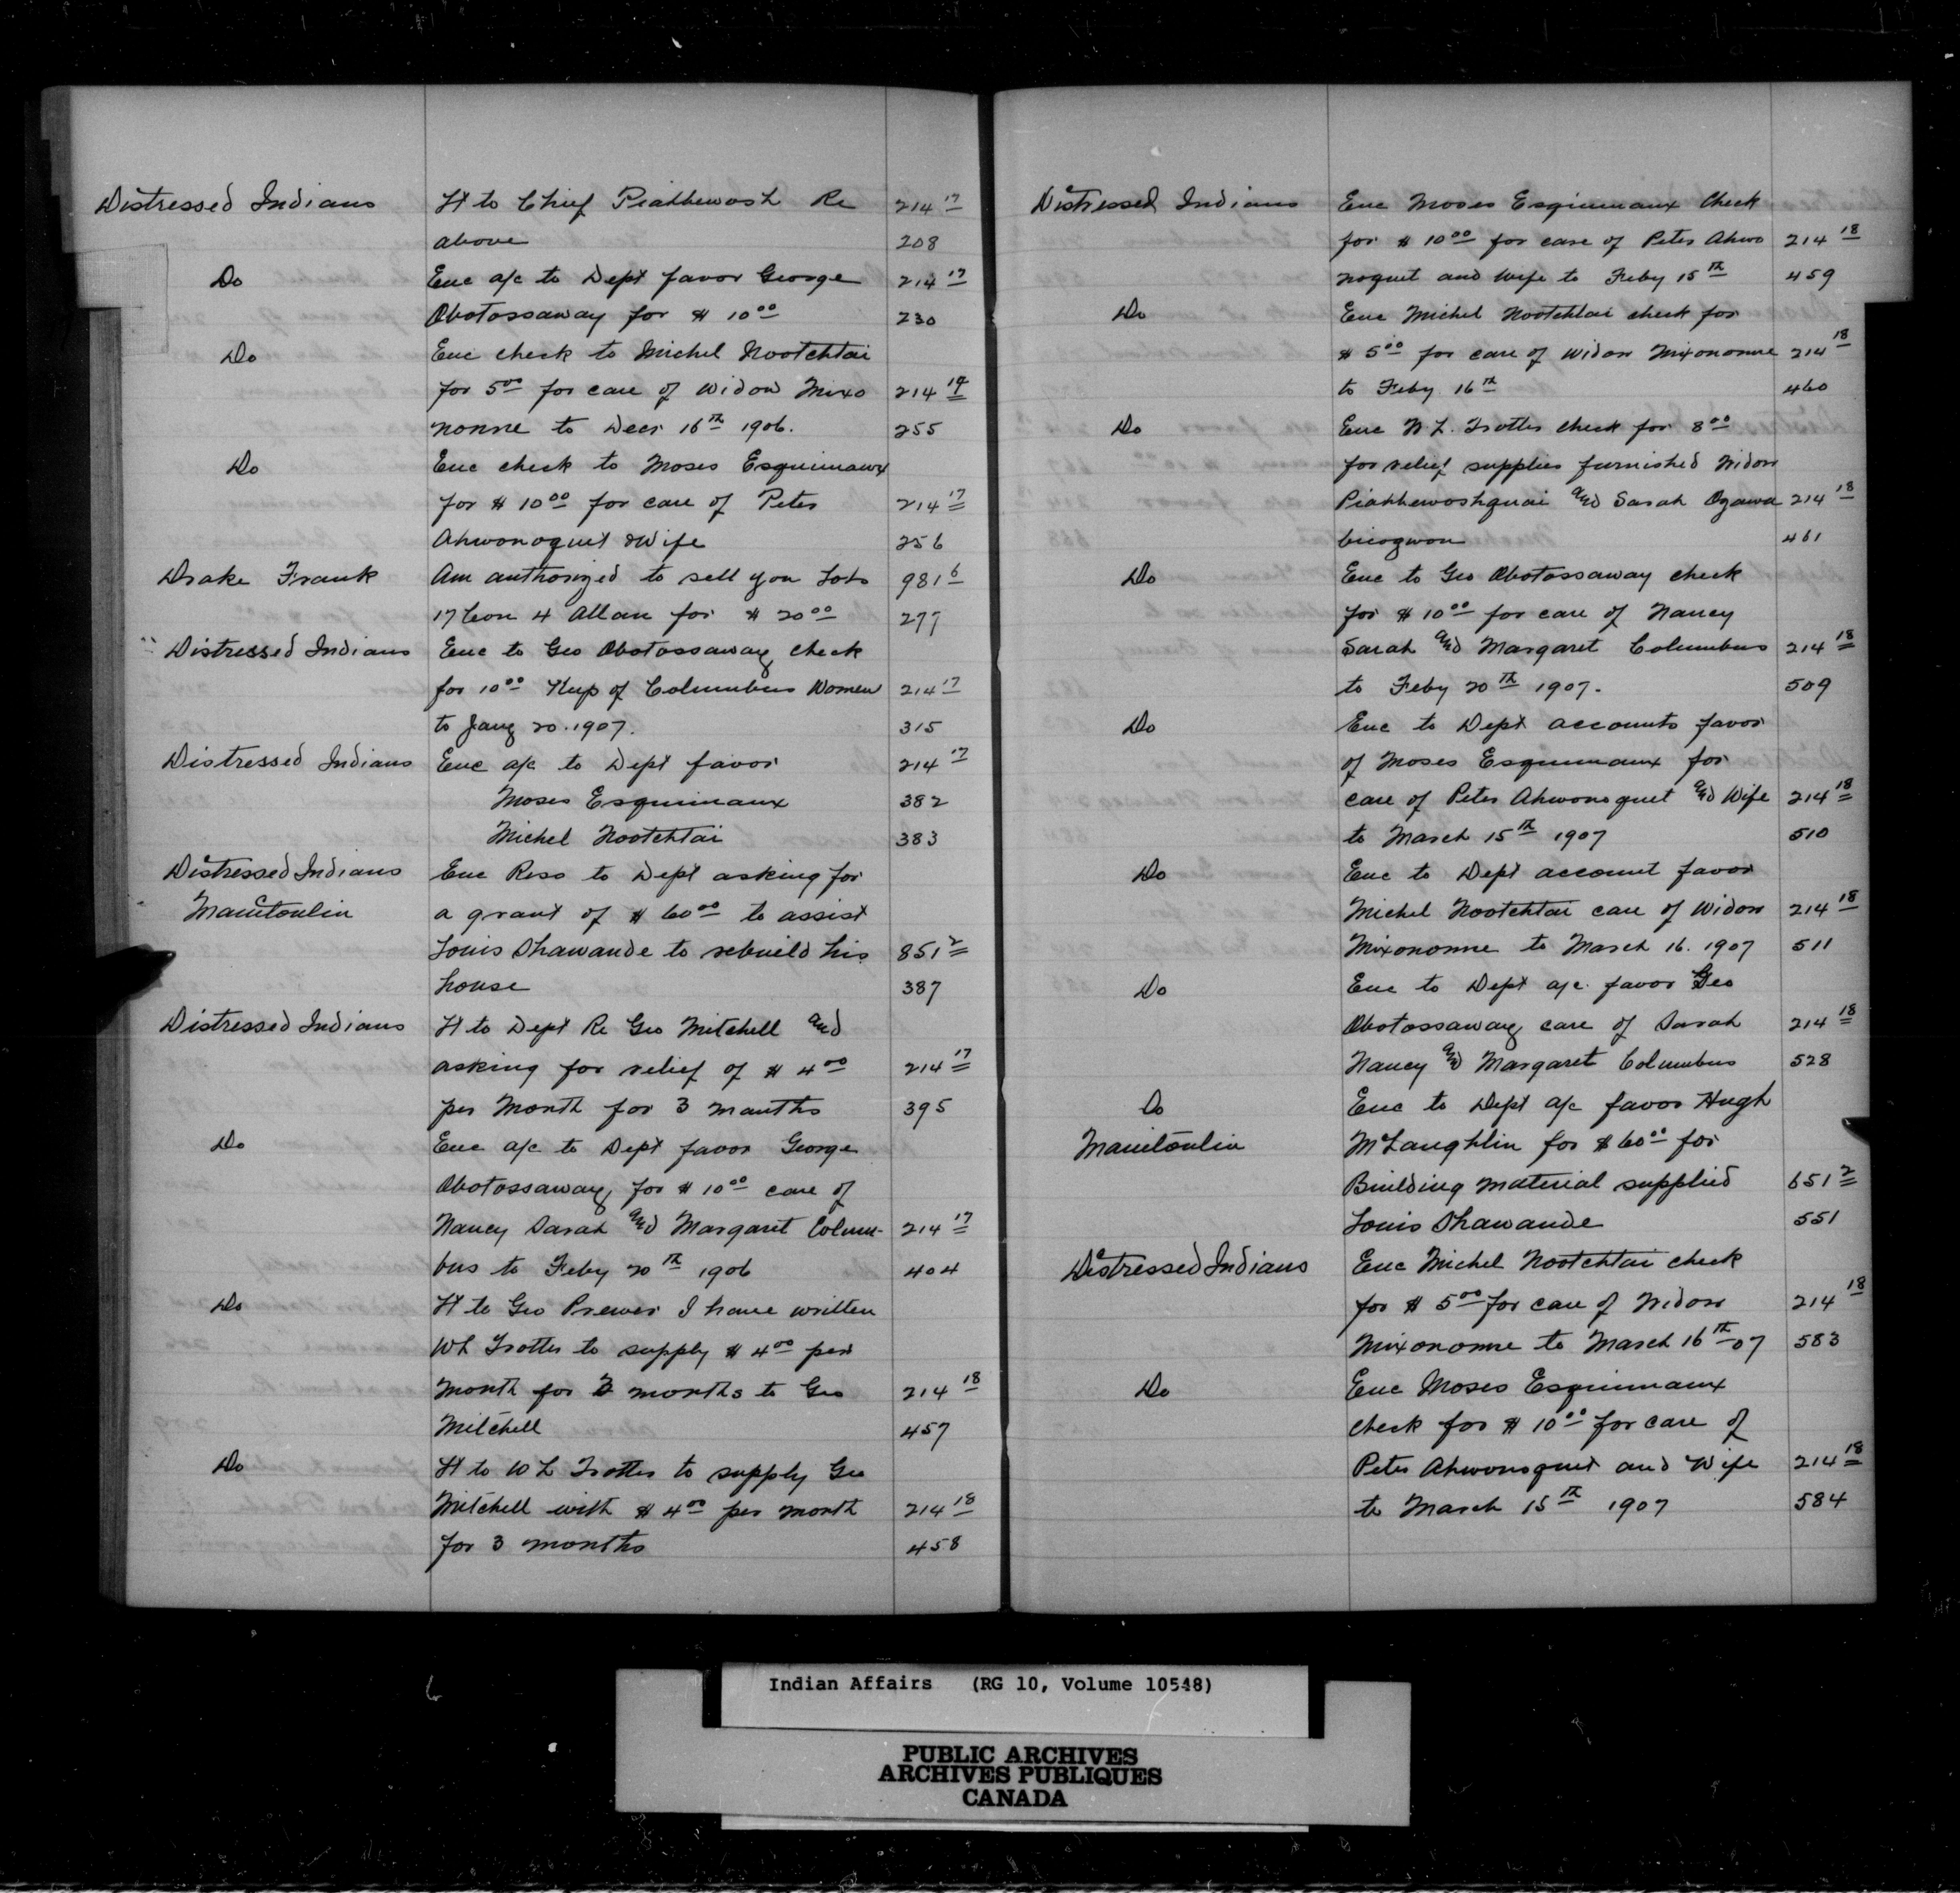 Distressed Indians Lt to Chief Piahbewosh Re 214 17
above 208
Do Enc a/c to Dept favor George 214 17
Obotossaway for $ 10 00 230
Do Enc check to Michel Nootchtai
for 5 00 for care of Widow Mixo 214 17
nonne to Decr 16th 1906. 255
Do Enc check to Moses Esquimaux
for $ 10 00 for care of Peter 214 17
Ahwonoquet & Wife 256
Drake Frank Am authorized to sell you Lots 981 6
17 Con 4 Allan for $ 20 00 277
" Distressed Indians Enc to Geo Obotossaway check
for 10 00 Keep of Columbus Women 214 17
to Jany 20. 1907. 315
Distressed Indians Enc a/c to Dept favor 214 17
Moses Esquimaux 382
Michel Nootchtai 383
Distressed Indians Enc Reso to Dept asking for
Manitoulin a grant of $ 60 00 to assist
Louis Shawande to rebuild his 851 2
house 387
Distressed Indians Lt to Dept Re Geo Mitchell and
asking for relief of $ 4 00 214 17
per Month for 3 months 395
Do Enc a/c to Dept favor George
Obotossaway for $ 10 00 care of
Nancy Sarah and Margaret Colum- 214 17
bus to Feby 20th 1906 404
Do Lt to Geo Prewer I have written
W L Trotter to supply $ 4 00 per
Month for 3 months to Geo 214 18
Mitchell 457
Do Lt to W L Trotter to supply Geo
Mitchell with $ 4 00 per month 214 18
for 3 months 458
Distressed Indians Enc Moses Esquimaux Check
for $ 10 00 for care of Peter Ahwo 214 18
noquet and Wife to Feby 15th 459
Do Enc Michel Nootchtai check for
$ 5 00 for care of Widow Mixononne 214 18
to Feby 16th 460
Do Enc W. L. Trotter check for 8 00
for relief supplies furnished Widow
Piahbewoshquai and Sarah Ogawa 214 18
bicogwon 461
Do Enc to Geo Obotossaway check
for $ 10 00 for care of Nancy
Sarah and Margaret Columbus 214 18
to Feby 20th 1907. 509
Do Enc to Dept accounts favor
of Moses Esquimaux for
care of Peter Ahwonoquet and Wife 214 18
to March 15th 1907 510
Do Enc to Dept account favor
Michel Nootchtai care of Widow 214 18
Mixononne to March 16. 1907 511
Do Enc to Dept a/c favor Geo
Obotossaway care of Sarah 214 18
Nancy and Margaret Columbus 528
Do Enc to Dept a/c favor Hugh
Manitoulin McLaughlin for $ 60 00 for
Building material supplied 651 2
Louis Shawande 551
Distressed Indians Enc Michel Nootchtai check
for $ 5 00 for care of Widow 214 18
Mixononne to March 16th 07 583
Do Enc Moses Esquimaux
check for $ 10 00 for care of
Peter Ahwonoquet and Wife 214 18
to March 15th 1907 584
6
Indian Affairs (RG 10, Volume 10548)
PUBLIC ARCHIVES
ARCHIVES PUBLIQUES
CANADA